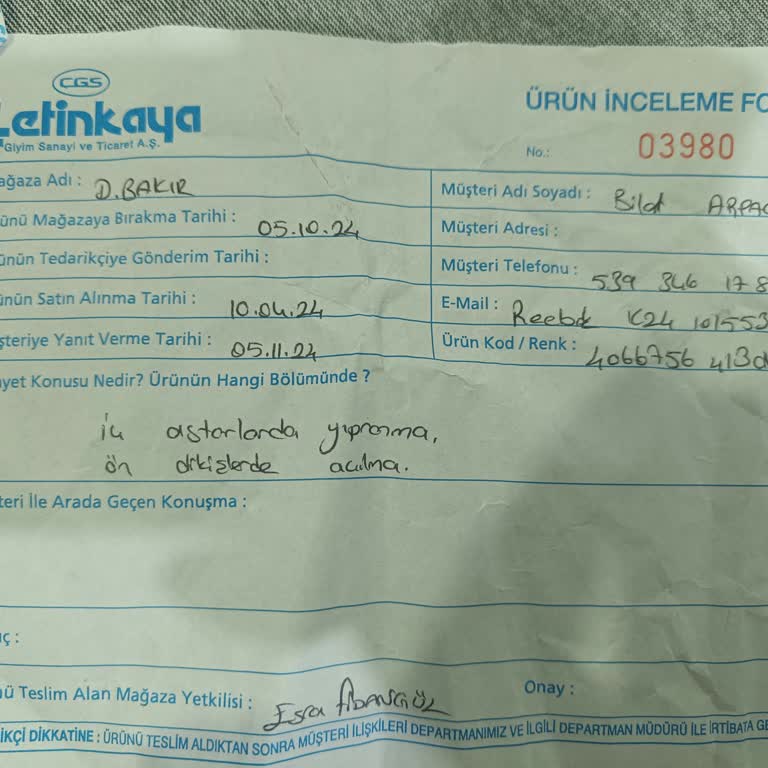 CGS
Çetinkaya
Giyim Sanayi ve Ticaret A.Ş.
ÜRÜN İNCELEME FO
No.: 03980
ağaza Adı : D.BAKIR
ünü Mağazaya Bırakma Tarihi : 05.10.24
ünün Tedarikçiye Gönderim Tarihi :
ünün Satın Alınma Tarihi : 10.04.24
şteriye Yanıt Verme Tarihi : 05.11.24
Müşteri Adı Soyadı : Bilal ARPAC
Müşteri Adresi :
Müşteri Telefonu : 539 346 178
E-Mail : Reebok K24 101553
Ürün Kod / Renk : 4066756 413
ayet Konusu Nedir? Ürünün Hangi Bölümünde ?
iç astarlarda yıpranma,
ön dikişlerde açılma.
teri İle Arada Geçen Konuşma :
ç :
ü Teslim Alan Mağaza Yetkilisi : Esra
Onay :
İKÇİ DİKKATİNE : ÜRÜNÜ TESLİM ALDIKTAN SONRA MÜŞTERİ İLİŞKİLERİ DEPARTMANIMIZ VE İLGİLİ DEPARTMAN MÜDÜRÜ İLE İRTİBATA GE